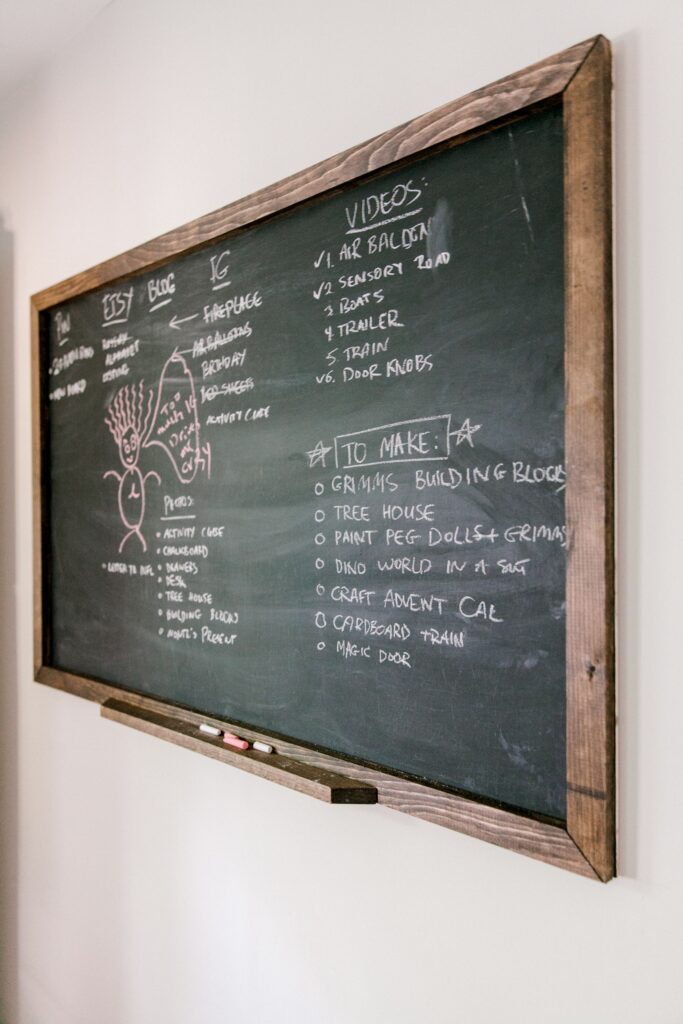 PIN
ETSY
BLOG
IG
FIREPLACE
AIR BALLOONS
BIRTHDAY
BED SHEETS
ACTIVITY CUBE
ALPHABET
Too
much IG
Drives
me
crazy
PHOTOS:
ACTIVITY CUBE
CHALKBOARD
DRAWERS
DESK
TREE HOUSE
BUILDING BLOCKS
PRESENT
VIDEOS:
✓1. AIR BALOON
✓2. SENSORY ROAD
3 BOATS
4 TRAILER
5 TRAIN
✓6. DOOR KNOBS
☆ TO MAKE: ☆
○ GRIMMS BUILDING BLOCKS
○ TREE HOUSE
○ PAINT PEG DOLLS + GRIMMS
○ DINO WORLD IN A
○ CRAFT ADVENT CAL
○ CARDBOARD TRAIN
○ MAGIC DOOR